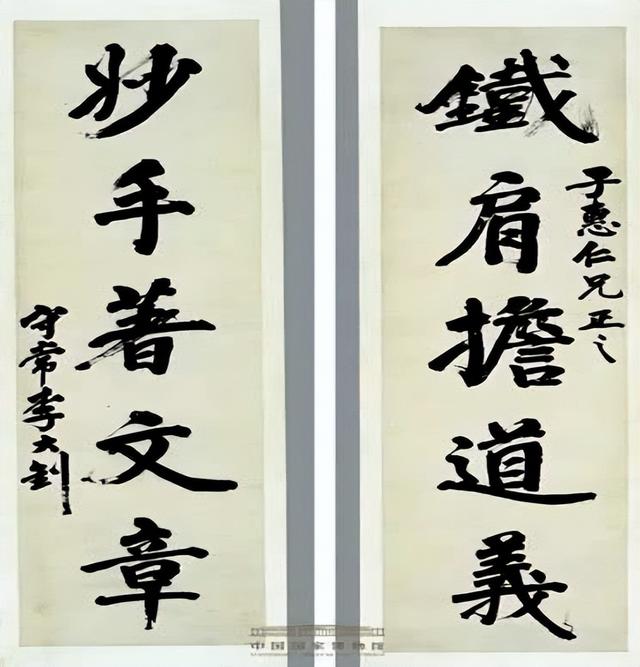 鐵肩擔道義
子惠仁兄正之
妙手著文章
守常李大釗
中国国家博物馆